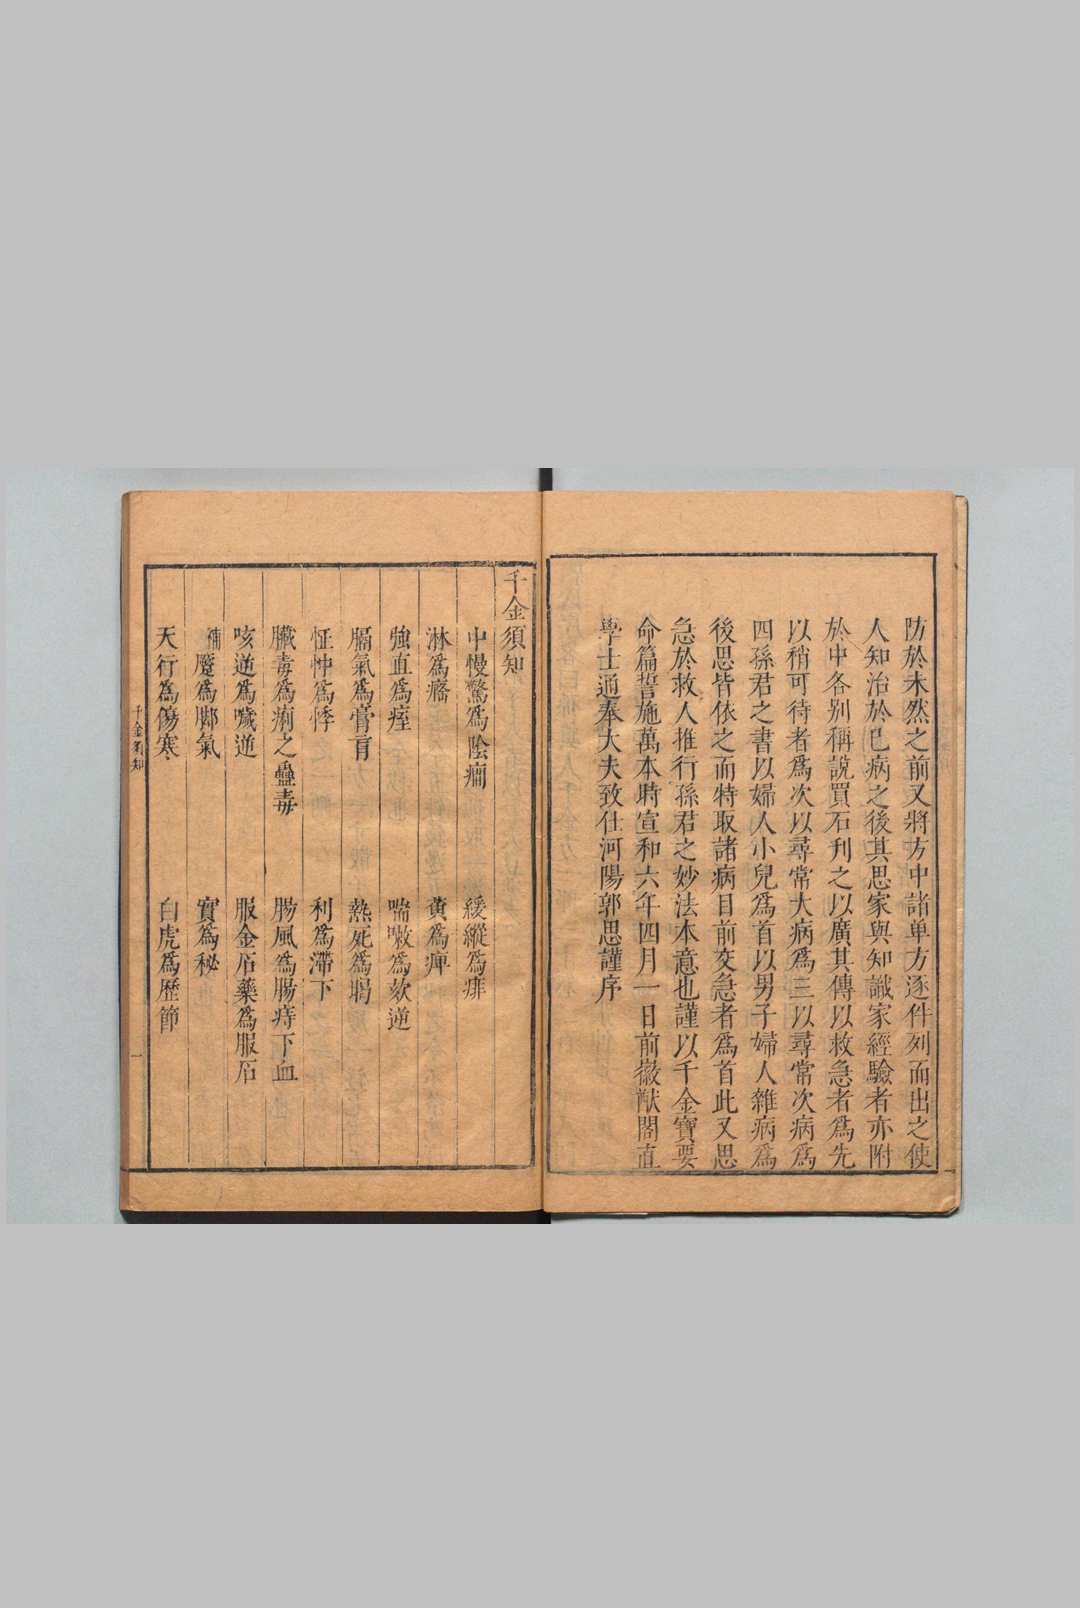 防於未然之前又將方中諸單方逐件列而出之使
人知治於已病之後其思家與知識家經驗者亦附
於中各別稱說買石刊之以廣其傳以救急者爲先
以稍可待者爲次以尋常大病爲三以尋常次病爲
四孫君之書以婦人小兒爲首以男子婦人雜病爲
後思皆依之而特取諸病目前交急者爲首此又思
急於救人推行孫君之妙法本意也謹以千金寶要
命篇誓施萬本時宣和六年四月一日前徽猷閣直
學士通奉大夫致仕河陽郭思謹序
千金須知
中慢驚爲陰癎 緩縱爲痱
淋爲癃 黃爲癉
強直爲痙 喘嗽爲欬逆
膈氣爲膏肓 熱死爲暍
怔忡爲悸 利爲滯下
臟毒爲痢之蠱毒 腸風爲腸痔下血
咳逆爲噦逆 服金石藥爲服石
補躄爲腳氣 實爲秘
天行爲傷寒 白虎爲歷節
千金須知 一